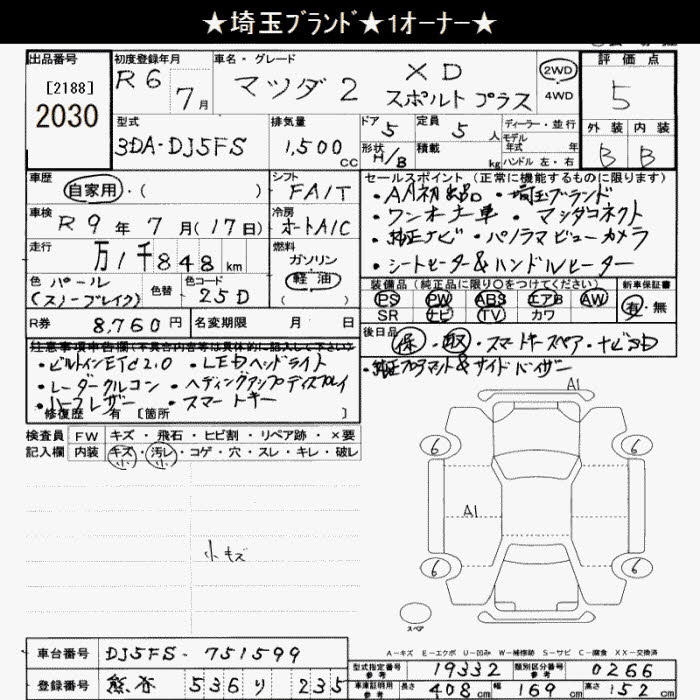 ★埼玉ﾌﾞﾗﾝﾄﾞ★1オーナー★
出品番号 初度登録年月 車名・グレード 評価点
[2188] R6 7月 マツダ2 XD 2WD 5
2030 スポルト プラス 4WD
型式 排気量 ドア 定員 ディーラー・並行 外装 内装
3DA-DJ5FS 1,500CC 5 5人 モデル年式 年 B B
形状 H/B 積載 kg ハンドル 左・右
車歴 シフト セールスポイント (正常に機能するものに限ります)
自家用・( ) FAIT ・AA初出品 ・埼玉ブランド
車検 冷房 ・ワンオーナー車 ・マツダコネクト
R9年7月(17日) オートA/C ・純正ナビ ・パノラマビューカメラ
走行 燃料 ・シートヒーター&ハンドルヒーター
万1千848km ガソリン
色 パール 色替 色コード 軽油 装備品 (純正品に限り○をつけてください) 新車保証書
(スノーフレイク) 25D ( ) PS PW ABS エアB AW 有・無
SR ナビ TV カワ
R券 8,760円 名変期限 月 日 後日品 保 取 ・スマートキースペア・ナビSD
・純正フロアマット&サイドバイザー
注意事項申告欄(不具合内容等は具体的に記入して下さい)
・ビルトインETC2.0 ・LEDヘッドライト
・レーダークルコン ・ヘディングアップディスプレイ
・ハーフレザー ・スマートキー
修復歴 有 [箇所 ]
検査員 FW キズ・飛石・ヒビ割・リペア跡・×要
記入欄 内装 キズ・汚レ・コゲ・穴・スレ・キレ・破レ
小 小
A1
6 6
A1
6 6
小キズ
スペア
A－キズ E－エクボ U－凹み W－補修跡 S－サビ C－腐食 XX－交換済
車台番号 DJ5FS-751599
型式指定番号 参考 19332 類別区分番号 参考 0266
登録番号 熊谷 536 り 235
車庫証明用 参考 長さ 408cm 幅 169cm 高さ 152cm